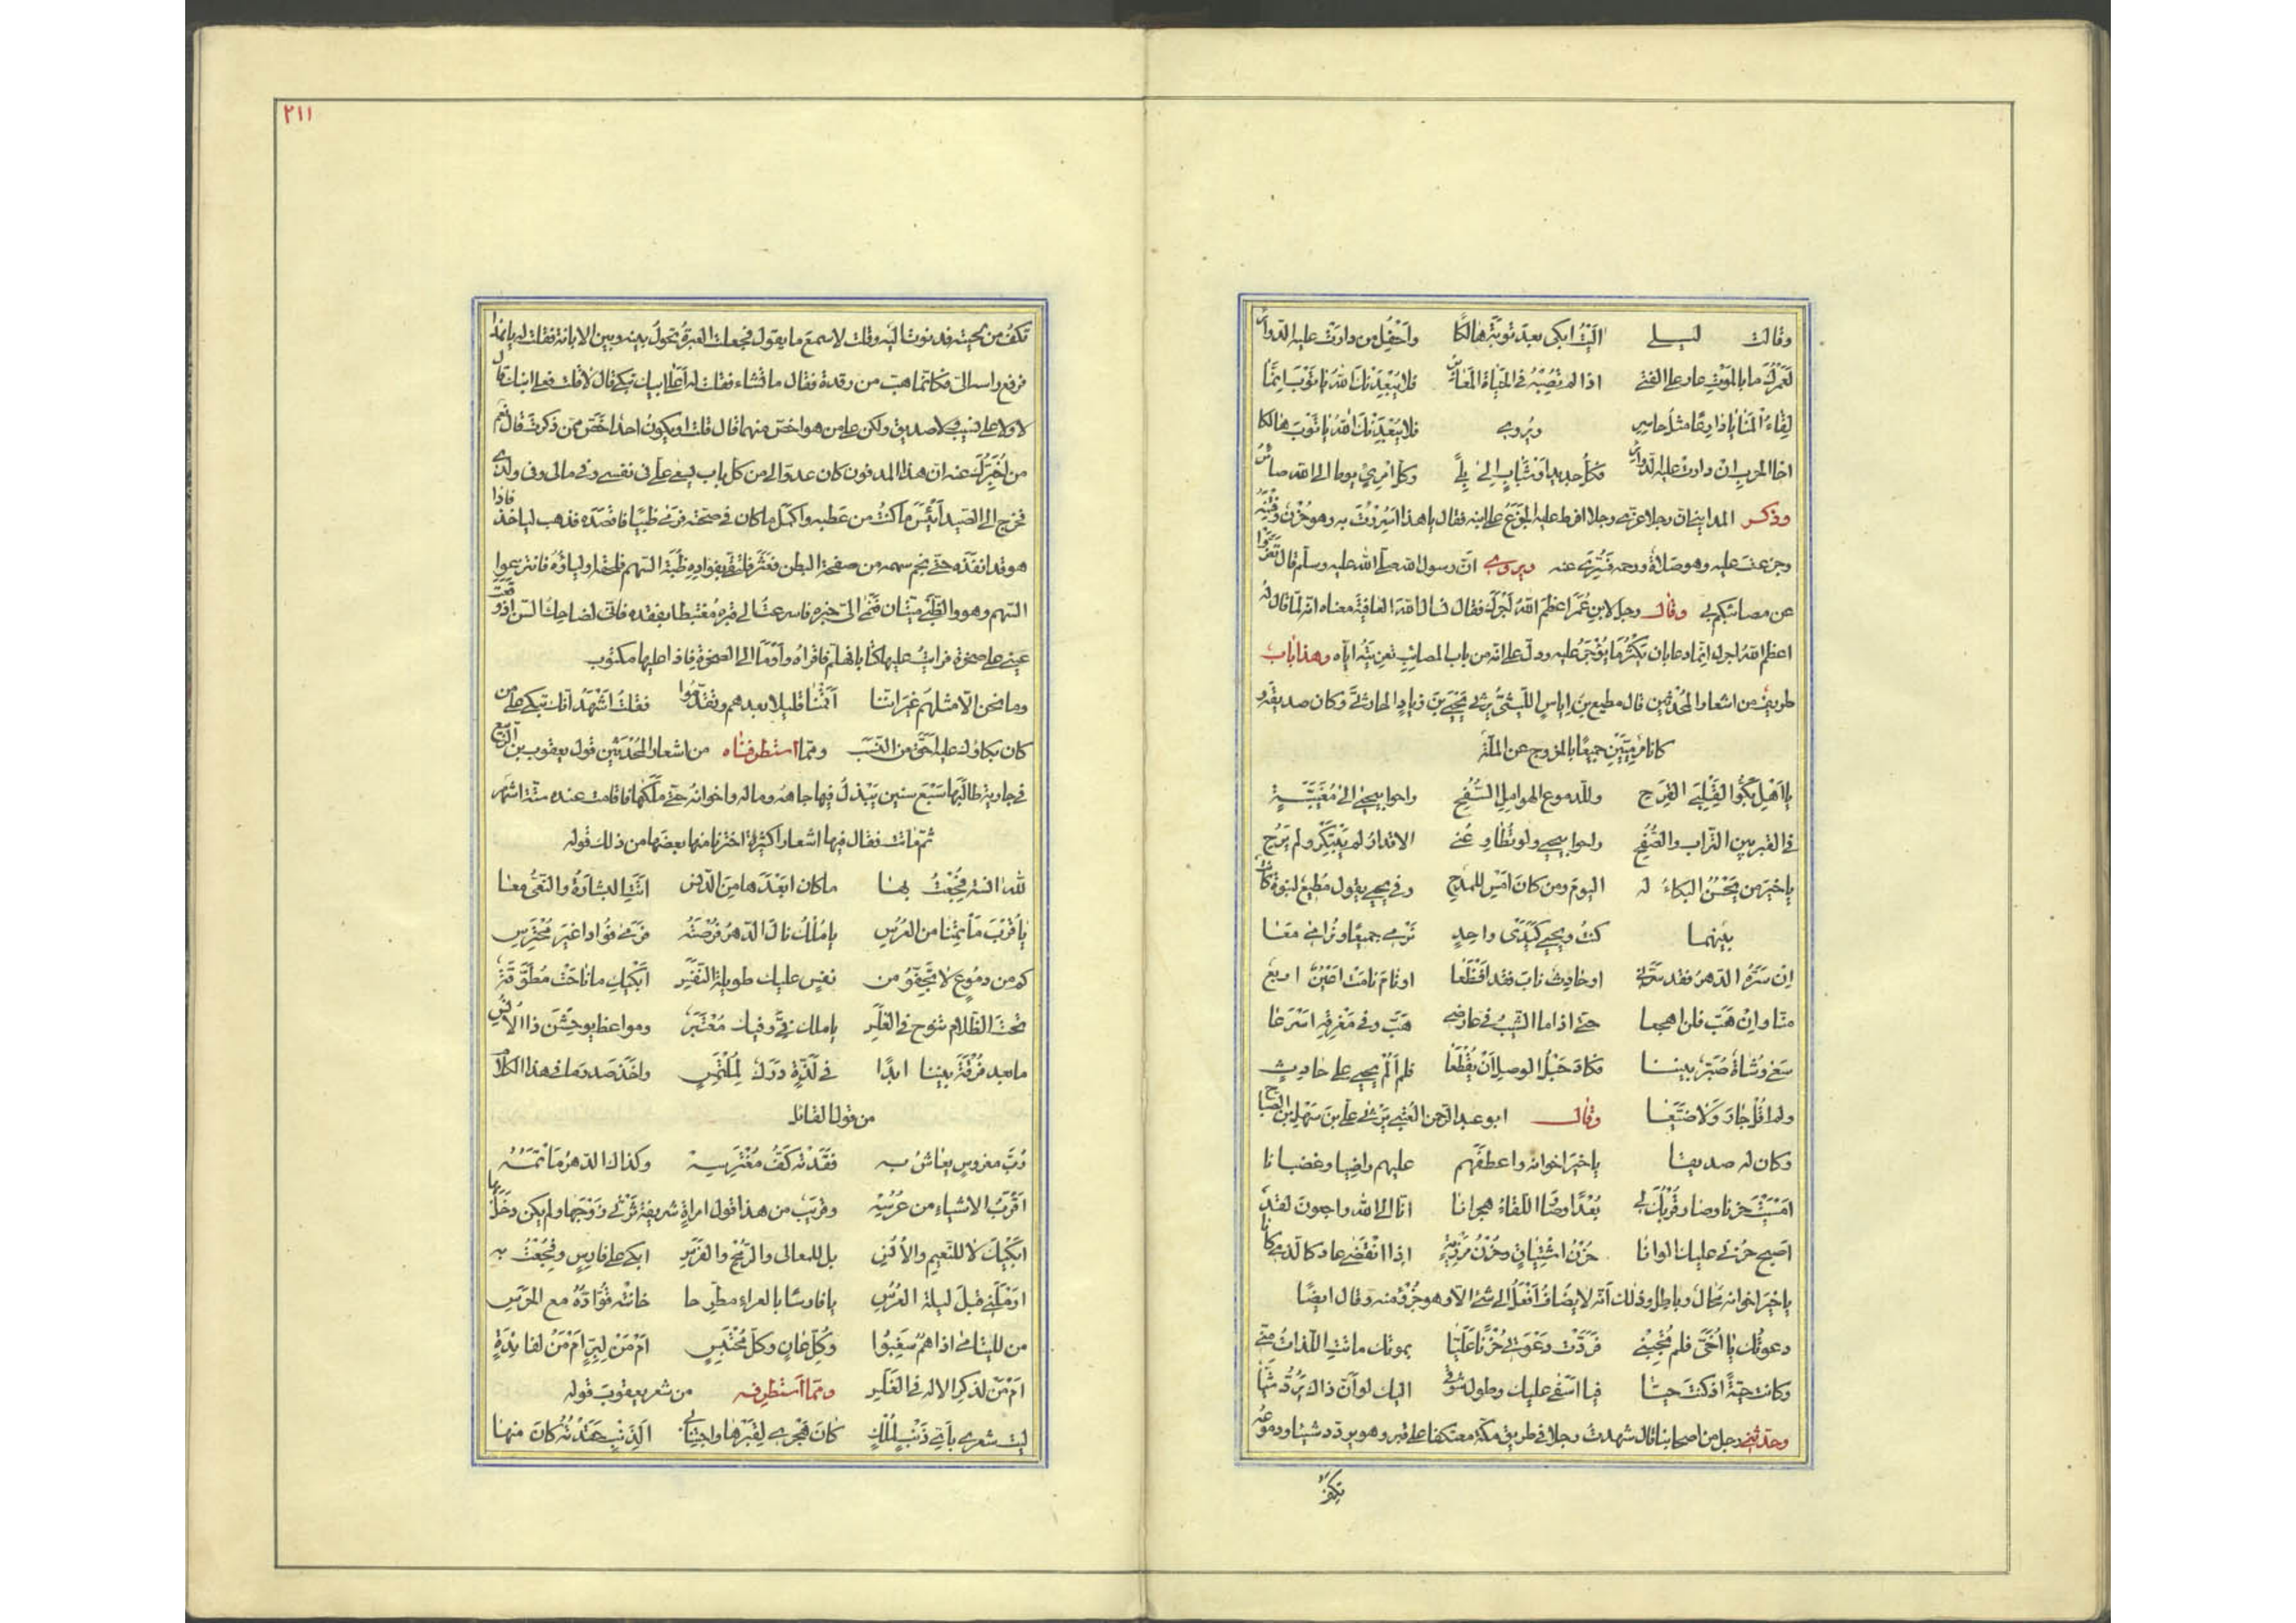 وقالت ليلى آليت ابكى بعد توبة هالكا وأحفل من دارت عليه الدوائر
لعمرك ما بالموت عار على الفتى اذا لم تصبه فى الحياة المعاير فلا يبعدنك الله يا توب انما
لقاء المنايا دارعا مثل حاسر ويروى فلا يبعدنك الله يا توب هالكا
اخا الحرب ان دارت عليه الدوائر فكل جديد او شباب الى بلى وكل امرئ يوما الى الله صائر
وذكر المداينى ان رجلا عزى رجلا افرط عليه الجزع على ابنه فقال يا هذا اسررت به وهو حزن وفتنة
وجزعت عليه وهو صلاة ورحمة فسرى عنه ويروى ان رسول الله صلى الله عليه وسلم قال تعزوا
عن مصائبكم بى وقال رجل لابن عمر اعظم الله اجرك فقال نسال الله العافية معناه انه لما قال له
اعظم الله اجرك انما دعا بان يكثر ما يؤجر عليه ودل على انه من باب المصائب تعزيته اياه وهذا باب
طريف من اشعار المحدثين قال مطيع بن اياس الليثى يرثى يحيى بن زياد الحارثى وكان صديقه و
كانا مرميين جميعا بالخروج عن الملة
يا اهل بكوا لقلبى القرح وللدموع الهوامل السفح راحوا بيحيى الى مغيبة
فى القبر بين التراب والصفح راحوا بيحيى ولو تطاوعنى الاقدار لم يبتكر ولم يرح
يا خير من يحسن البكاء له اليوم ومن كان امس للمدح وفى يحيى يقول مطيع لنبوة كانت
بينهما كنت ويحيى كيدى واحد نرمى جميعا ونرامى معا
ان سره الدهر فقد سرنى او حادث ناب فقد افظعا او نام نامت اعين اربع
منا وان هب فلن اهجعا حتى اذا ما الشيب فى عارضى هب وفى مفرقه اسرعا
سعى وشاة صبر بيننا فكاد حبل الوصل ان يقطعا فلم ألم يحيى على حادث
ولم اقل جار ولا ضيعا وقال ابو عبد الرحمن العتبى يرثى على بن سهل بن الصباح
وكان له صديقا يا خير اخوانه واعطفهم عليهم راضيا وغضبانا
امسيت حزنا وصار قربك لى بعدا وصار اللقاء هجرانا انا الى الله راجعون لقد
اصبح حزنى عليك الوانا حزن اشتياق وحزن مرزئة اذا انقضى عاد كالذى كانا
يا خير اخوانه محال وباطل وذلك انه لا يضاف افعل الى شئ الا وهو جزء منه وقال ايضا
دعوتك يا اخى فلم تجبنى فردت دعوتى حزنا عليا بموتك ماتت اللذات منى
وكانت حية اذ كنت حيا فيا اسفى عليك وطول شوقى اليك لو ان ذاك يرد شيا
وحدثنى رجل من اصحابنا قال شهدت رجلا فى طريق مكة معتكفا على قبر وهو يردد شيئا ودموعه
تكف من
تكف من لحيته فدنوت اليه وقلت لاسمع ما يقول فجعلت العبرة تحول بينه وبين الابانة فقلت له يا هذا
فرفع راسه الى فكانما هب من رقدة فقال ما تشاء فقلت له أعلى ابيك تبكى قال لا قلت فعلى ابنك قال
لا ولا على نسيب ولا صديق ولكن على من هو اخص منهما قال قلت او يكون احد اخص ممن ذكرت قال نعم
من اخبرك عنه ان هذا المدفون كان عدوا لى من كل باب يسعى على فى نفسى وفى مالى وفى ولدى
فخرج الى الصيد أيئس ما كنت من عطبه واكمل ما كان فى صحته فرمى ظبيا فاقصده فذهب لياخذه فاذا
هو قد انفذه حتى نجم سهمه من صفحة البطن فعثر فتلقى بفؤاده ظبة السهم فلحقه اولياؤه فانتزعوا
السهم وهو والظبى ميتان فنمى الى خبره فاسرعت الى قبره مغتبطا بفقده فانى لضاحك السن اذ وقعت
عينى على صخرة فرايت عليها كتابا فهلم فاقراه وأومأ الى الصخرة فاذا عليها مكتوب
وما نحن الا مثلهم غير اننا اقمنا قليلا بعدهم وتقدموا فقلت اشهد انك تبكى على من
كان بكاؤك عليه احق من النسب ومما استظرفناه من اشعار المحدثين قول يعقوب بن الربيع
فى جارية طالبها سبع سنين يبذل فيها جاهه وماله واخوانه حتى ملكها فاقامت عنده ستة اشهر
ثم ماتت فقال فيها اشعارا كثيرة اخترنا منها بعضها من ذلك قوله
لله آنسة فجعت بها ما كان ابعدها من الدنس اتت البشارة والنعى معا
يا قرب ماتمنا من العرس يا ملك نال الدهر فرصته فرمى فؤادا غير محترس
كم من دموع لا تجف ومن نفس عليك طويلة النفس ابكيك ما ناحت مطوقة
تحت الظلام تنوح فى الغلس يا ملك فى وفيك معتبر ومواعظ يوحشن ذا الانس
ما بعد فرقة بيننا ابدا فى لذة درك لملتمس واخذ صدر ما فى هذا الكلام
من قول القائل
رب مغروس يعاش به فقدته كف مغترسه وكذاك الدهر ماتمه
اقرب الاشياء من عرسه وقريب من هذا قول امراة شريفة ترثى زوجها ولم يكن دخل بها
ابكيك لا للنعيم والانس بل للمعالى والرمح والفرس ابكى على فارس فجعت به
ارملنى قبل ليلة العرس يا فارسا بالعراء مطرحا خانته قواده مع الحرس
من لليتامى اذا هم سغبوا وكل عان وكل محتبس ام من لبر ام من لفائدة
ام من لذكر الاله فى الغلس ومما استطرف من شعر يعقوب قوله
ليت شعرى باى ذنب لملك كان هجرى لقبرها واجتنابى الذنب حقدته كان منها
٢١١